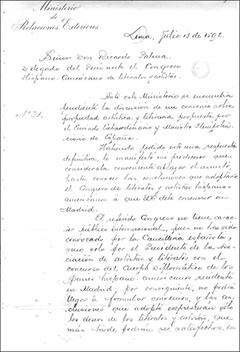 Ministerio
de
Relaciones Exteriores
Lima, Julio 15 de 1892.
Señor Don Ricardo Palma,
Delegado del Perú ante el Congreso
Hispano-Americano de Literatos y Artistas.
Nº 31.
Ante este Ministerio se encuentra
pendiente la discusión de un convenio sobre
propiedad artística y literaria, propuesto por
el Enviado Extraordinario y Ministro Plenipoten-
ciario de España.
Habiendo pedido este una respuesta
definitiva, le manifesté mi
que
consideraba conveniente aplazar el asunto,
hasta conocer las conclusiones que adoptase
el Congreso de literatos y artistas hispano-
americanos a que US. debe concurrir en
Madrid.
El referido Congreso no tiene carac-
ter público internacional, pues no ha sido
convocado por la Cancillería española,
sino solo por el Presidente de la Aso-
ciación de artistas y literatos con el
concurso del Cuerpo Diplomático de los
países hispano-americanos residente
en Madrid; por consiguiente, no podrá
llegar a formular convenios, y las con-
clusiones que adopte expresarán solo
los deseos de los literatos y artistas, que
más tarde podrán ser adoptados, en